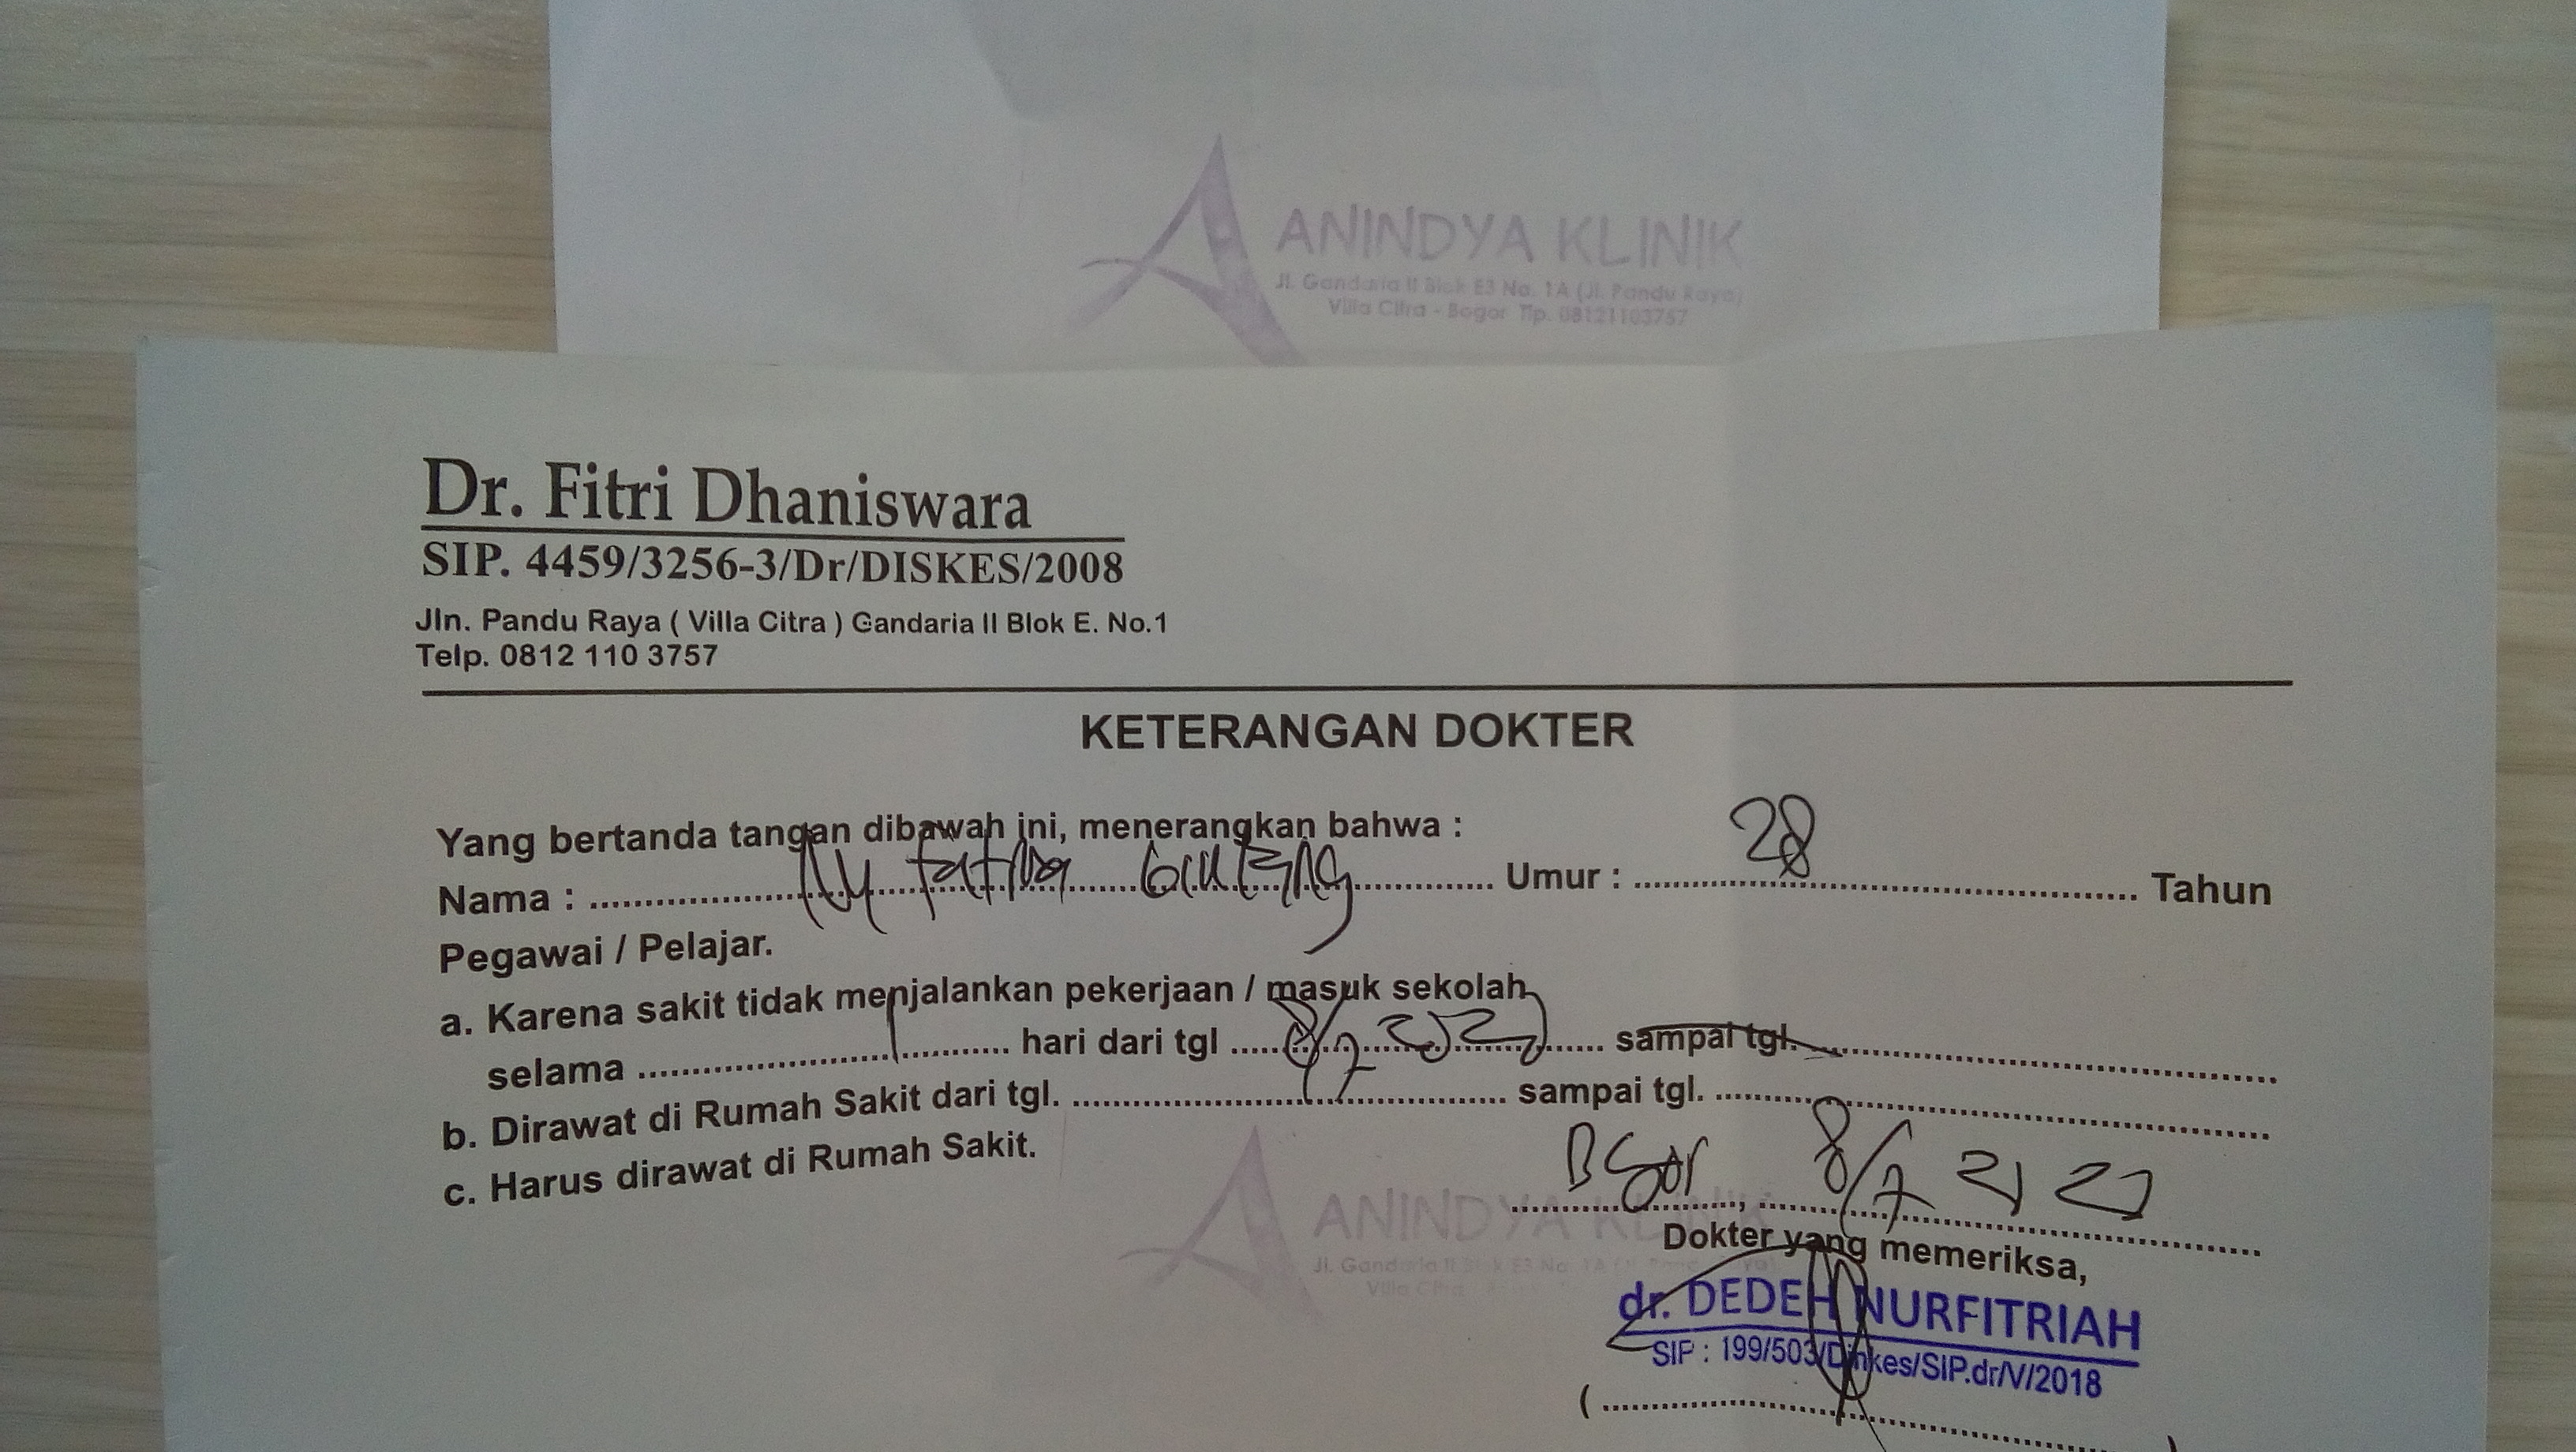 ANINDYA KLINIK
Jl. Gandaria II Blok E3 No. 1A (Jl. Pandu Raya)
Villa Citra - Bogor Tlp. 08121103757
Dr. Fitri Dhaniswara
SIP. 4459/3256-3/Dr/DISKES/2008
Jln. Pandu Raya ( Villa Citra ) Gandaria II Blok E. No.1
Telp. 0812 110 3757
KETERANGAN DOKTER
Yang bertanda tangan dibawah ini, menerangkan bahwa :
Nama : Ny Umur : 28 Tahun
Pegawai / Pelajar.
a. Karena sakit tidak menjalankan pekerjaan / masuk sekolah
selama 1 hari dari tgl 8/7 sampai tgl.
b. Dirawat di Rumah Sakit dari tgl. sampai tgl.
c. Harus dirawat di Rumah Sakit.
ANINDYA KLINIK
8/7
Dokter yang memeriksa,
dr. DEDEH NURFITRIAH
SIP : 199/503/Dinkes/SIP.dr/V/2018